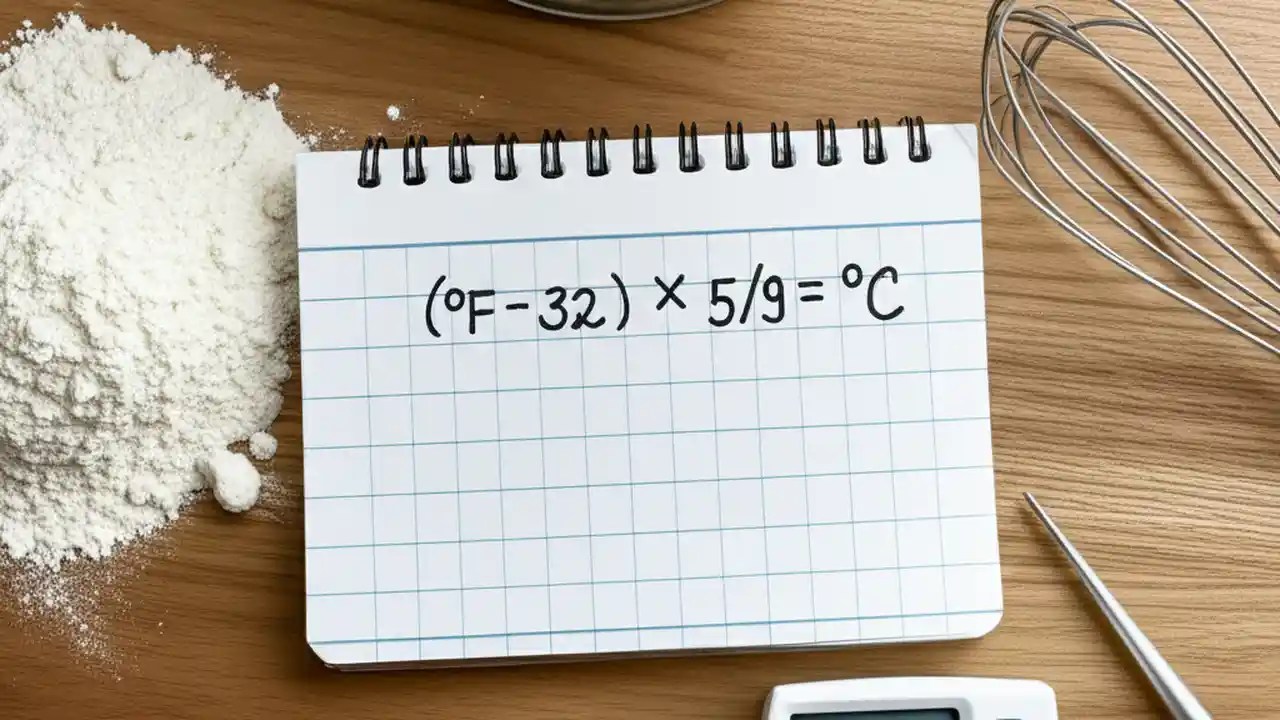 (°F - 32) × 5/9 = °C